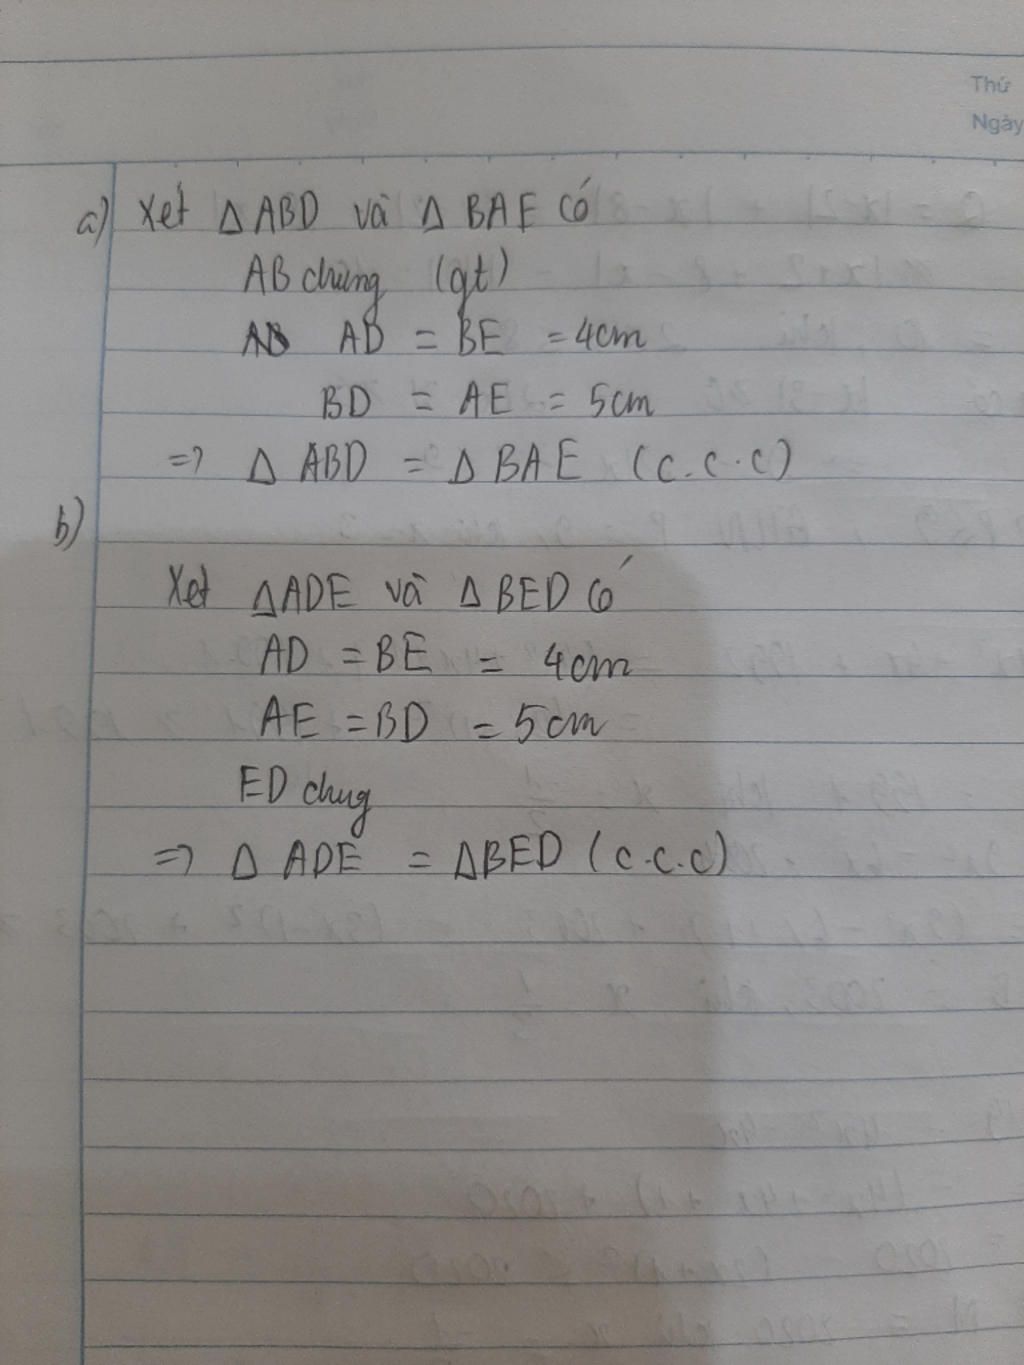 Thứ
Ngày
a) Xét Δ ABD và Δ BAE có
AB chung (gt)
AD = BE = 4cm
BD = AE = 5cm
=> Δ ABD = Δ BAE (c.c.c)
b)
Xét ΔADE và Δ BED có
AD = BE = 4cm
AE = BD = 5cm
ED chug
=> Δ ADE = ΔBED (c.c.c)